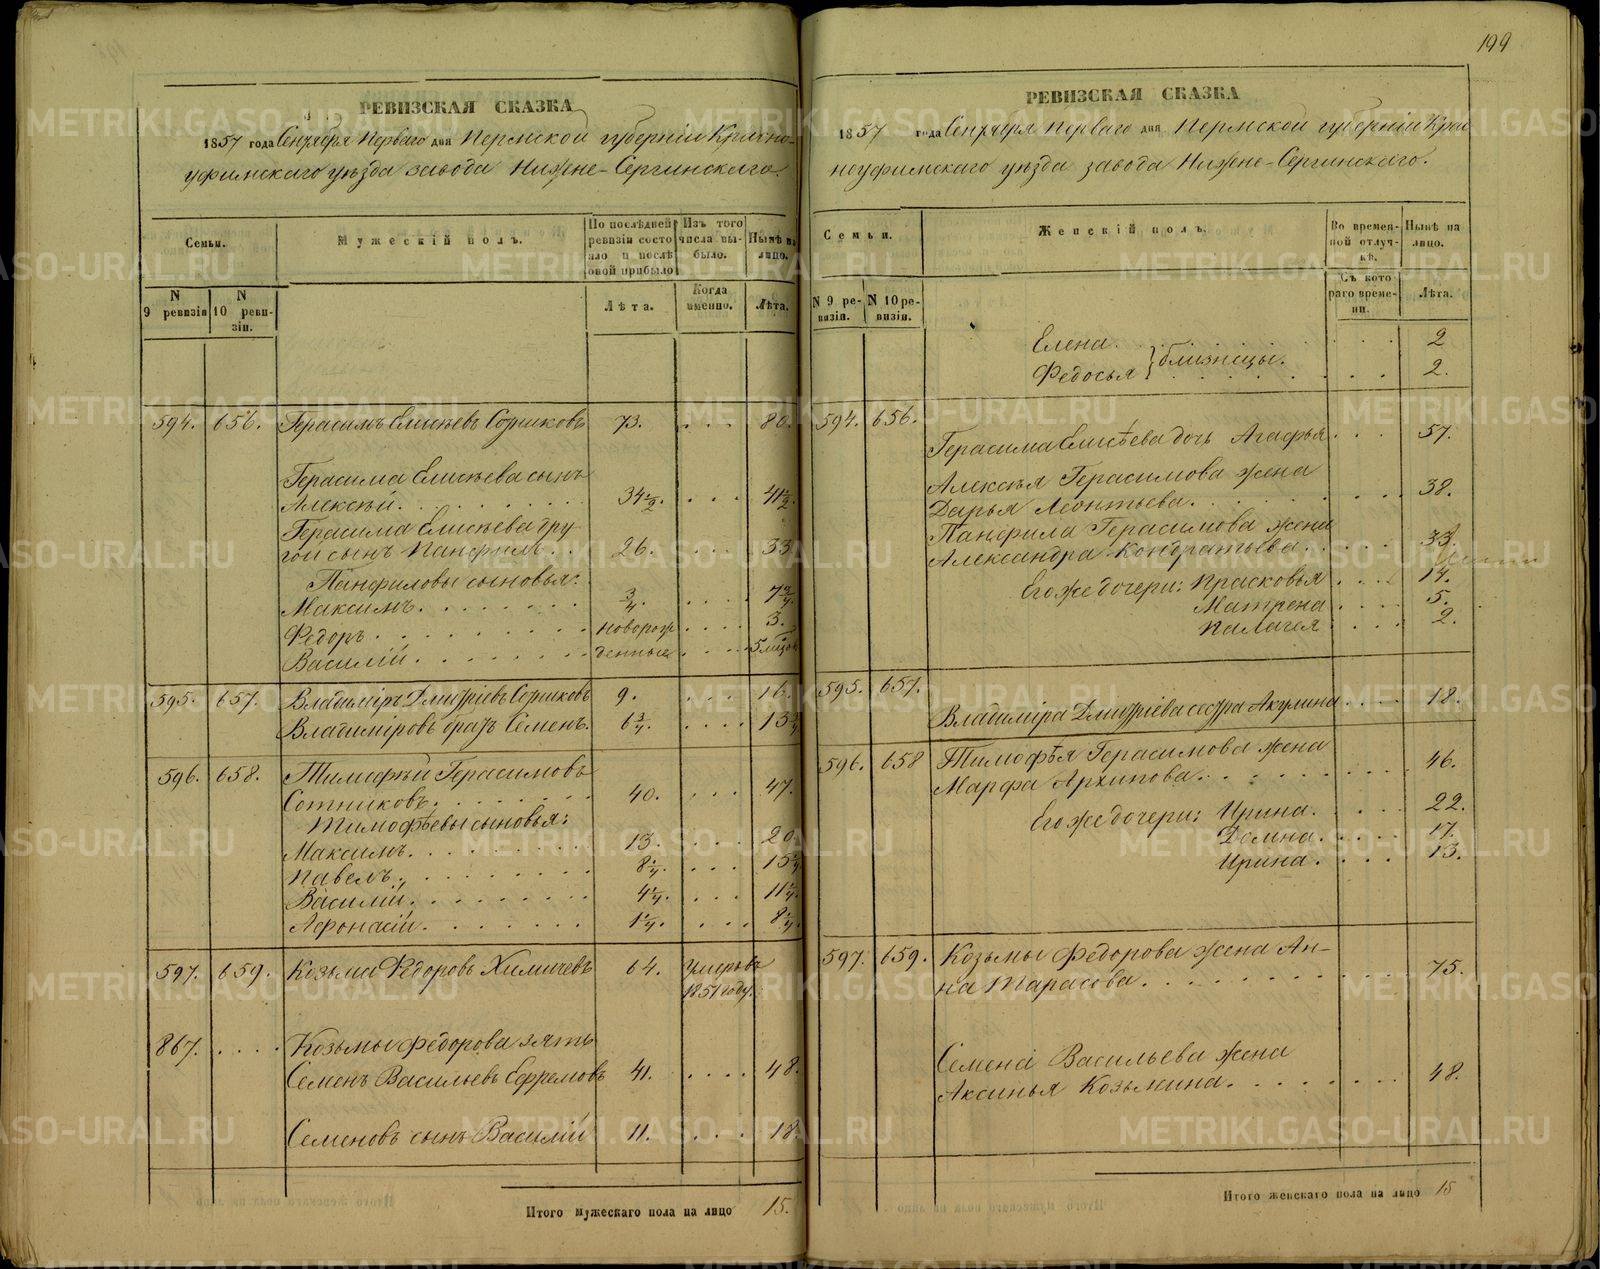 199
РЕВИЗСКАЯ СКАЗКА
1857 года Сентября Перваго дня Пермской губерніи Красно-
уфимскаго уѣзда завода Нижне-Сергинскаго.
Семьи.
Мужескій полъ.
По послѣдней ревизіи состояло и послѣ оной прибыло
Изъ того числа выбыло.
Нынѣ на лицо.
N 9 ревизіи
N 10 ревизіи.
Лѣта.
Когда именно.
Лѣта.
594. 656. Герасимъ Елисѣевъ Сотниковъ 73. . . . 80.
Герасима Елисѣева сынъ
Алексѣй. 34½. . . . 41½.
Герасима Елисѣева дру-
гой сынъ Панфилъ. . 26. . . . 33.
Панфиловы сыновья:
Максимъ. ¾. . . . 7¾.
Федоръ. новорож . . . 3.
Василій. денные . . . 5 мѣсяц
595. 657. Владиміръ Дмитріевъ Сотниковъ 9. . . . 16.
Владиміровъ братъ Семенъ. 6¾. . . . 13¾
596. 658. Тимофѣй Герасимовъ
Сотниковъ. 40. . . . 47.
Тимофѣевы сыновья:
Максимъ. 13. . . . 20.
Павелъ. 8¼. . . . 15¼.
Василій. 4¼. . . . 11¼.
Афонасій. 1¼. . . . 8¼.
597. 659. Козьма Федоровъ Химичевъ 64. Умеръ въ
1851 году.
867. . . . . Козьмы Федорова зять
Семенъ Васильевъ Ефремовъ 41. . . . 48.
Семеновъ сынъ Василій 11. . . . 18.
Итого мужескаго пола на лицо 15.
РЕВИЗСКАЯ СКАЗКА
1857 года Сентября Перваго дня Пермской губерніи Крас
ноуфимскаго уѣзда завода Нижне-Сергинскаго.
Семьи.
Женскій полъ.
Во временной отлучкѣ.
Нынѣ на лицо.
N 9 ревизіи.
N 10 ревизіи.
Съ котораго времени.
Лѣта.
Елена. 2
Федосья } близнецы. 2.
594. 656.
Герасима Елисѣева дочь Агафья . . . 57.
Алексѣя Герасимова жена
Дарья Леонтьева. 38.
Панфила Герасимова жена
Александра Кондратьева. 33.
Его же дочери: Прасковья . . . 17.
Матрена . . . 5.
Палагея . . . 2.
595. 657.
Владиміра Дмитріева сестра Акулина . . . 18.
596. 658 Тимофѣя Герасимова жена
Марфа Архипова. 46.
Его же дочери: Ирина. 22.
Домна. 17.
Ирина. 13.
597. 659. Козьмы Федорова жена Ан-
на Тарасова. 75.
Семена Васильева жена
Аксинья Козьмина. 48.
Итого женскаго пола на лицо 15
METRIKI.GASO-URAL.RU